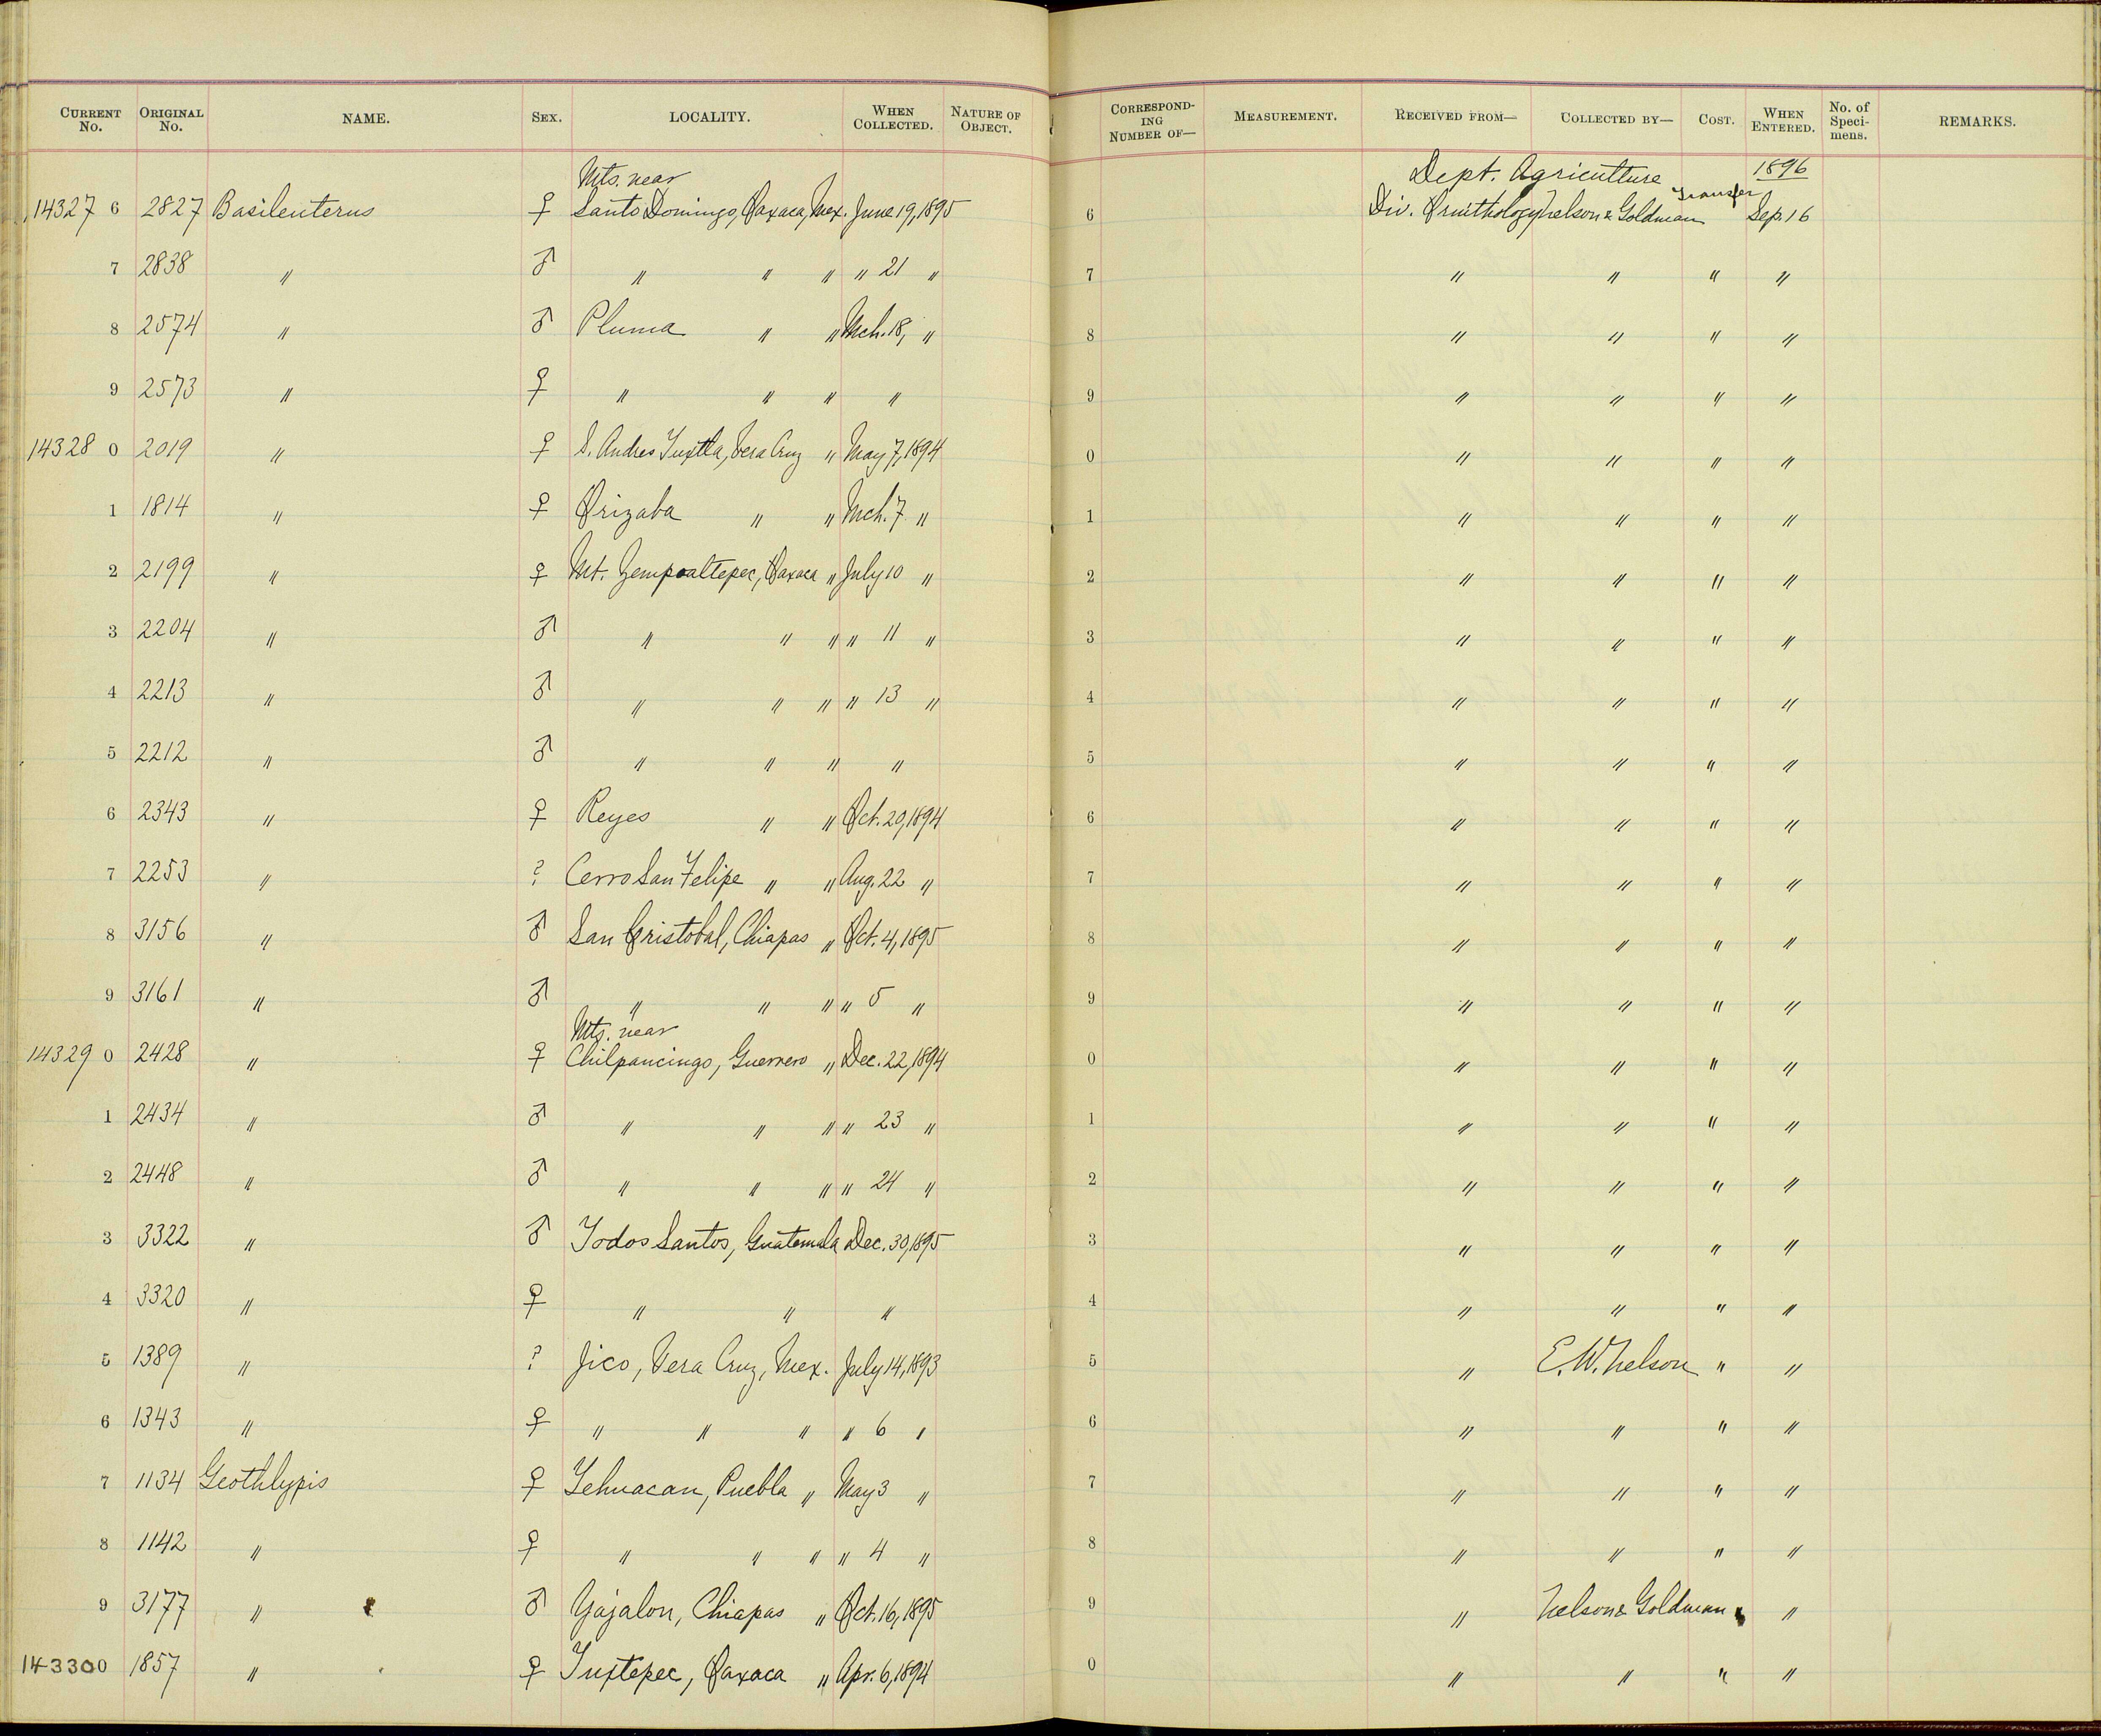 CURRENT No. ORIGINAL No. NAME. SEX. LOCALITY. WHEN COLLECTED. NATURE OF OBJECT. CORRESPONDING NUMBER OF— MEASUREMENT. RECEIVED FROM— COLLECTED BY— COST. WHEN ENTERED. No. of Specimens. REMARKS.
Mts. near Dept. Agriculture Transfer 1896
14327 6 2827 Basileuterus ♀ Santo Domingo, Oaxaca, Mex. June 19, 1895 6 Div. Ornithology Nelson & Goldman Sep. 16
7 2838 " ♂ " " " " 21 " 7 " " " "
8 2574 " ♂ Pluma " " Mch. 18, " 8 " " " "
9 2573 " ♀ " " " " 9 " " " "
14328 0 2019 " ♀ S. Andres Tuxtla, Vera Cruz " May 7, 1894 0 " " " "
1 1814 " ♀ Orizaba " " Mch. 7 " 1 " " " "
2 2199 " ♀ Mt. Zempoaltepec, Oaxaca " July 10 " 2 " " " "
3 2204 " ♂ " " " " 11 " 3 " " " "
4 2213 " ♂ " " " " 13 " 4 " " " "
5 2212 " ♂ " " " " 5 " " " "
6 2343 " ♀ Reyes " " Oct. 20, 1894 6 " " " "
7 2253 " ? Cerro San Felipe " " Aug. 22 " 7 " " " "
8 3156 " ♂ San Cristobal, Chiapas " Oct. 4, 1895 8 " " " "
9 3161 " ♂ " " " " 5 " 9 " " " "
Mts. near
14329 0 2428 " ♀ Chilpancingo, Guerrero " Dec. 22, 1894 0 " " " "
1 2434 " ♂ " " " " 23 " 1 " " " "
2 2448 " ♂ " " " " 24 " 2 " " " "
3 3322 " ♂ Todos Santos, Guatemala Dec. 30, 1895 3 " " " "
4 3320 " ♀ " " " 4 " " " "
5 1389 " ? Jico, Vera Cruz, Mex. July 14, 1893 5 " E. W. Nelson " "
6 1343 " ♀ " " " " 6 " 6 " " " "
7 1134 Geothlypis ♀ Tehuacan, Puebla " May 3 " 7 " " " "
8 1142 " ♀ " " " " 4 " 8 " " " "
9 3177 " ♂ Yajalon, Chiapas " Oct. 16, 1895 9 " Nelson & Goldman " "
14330 0 1857 " ♀ Tuxtepec, Oaxaca " Apr. 6, 1894 0 " " " "